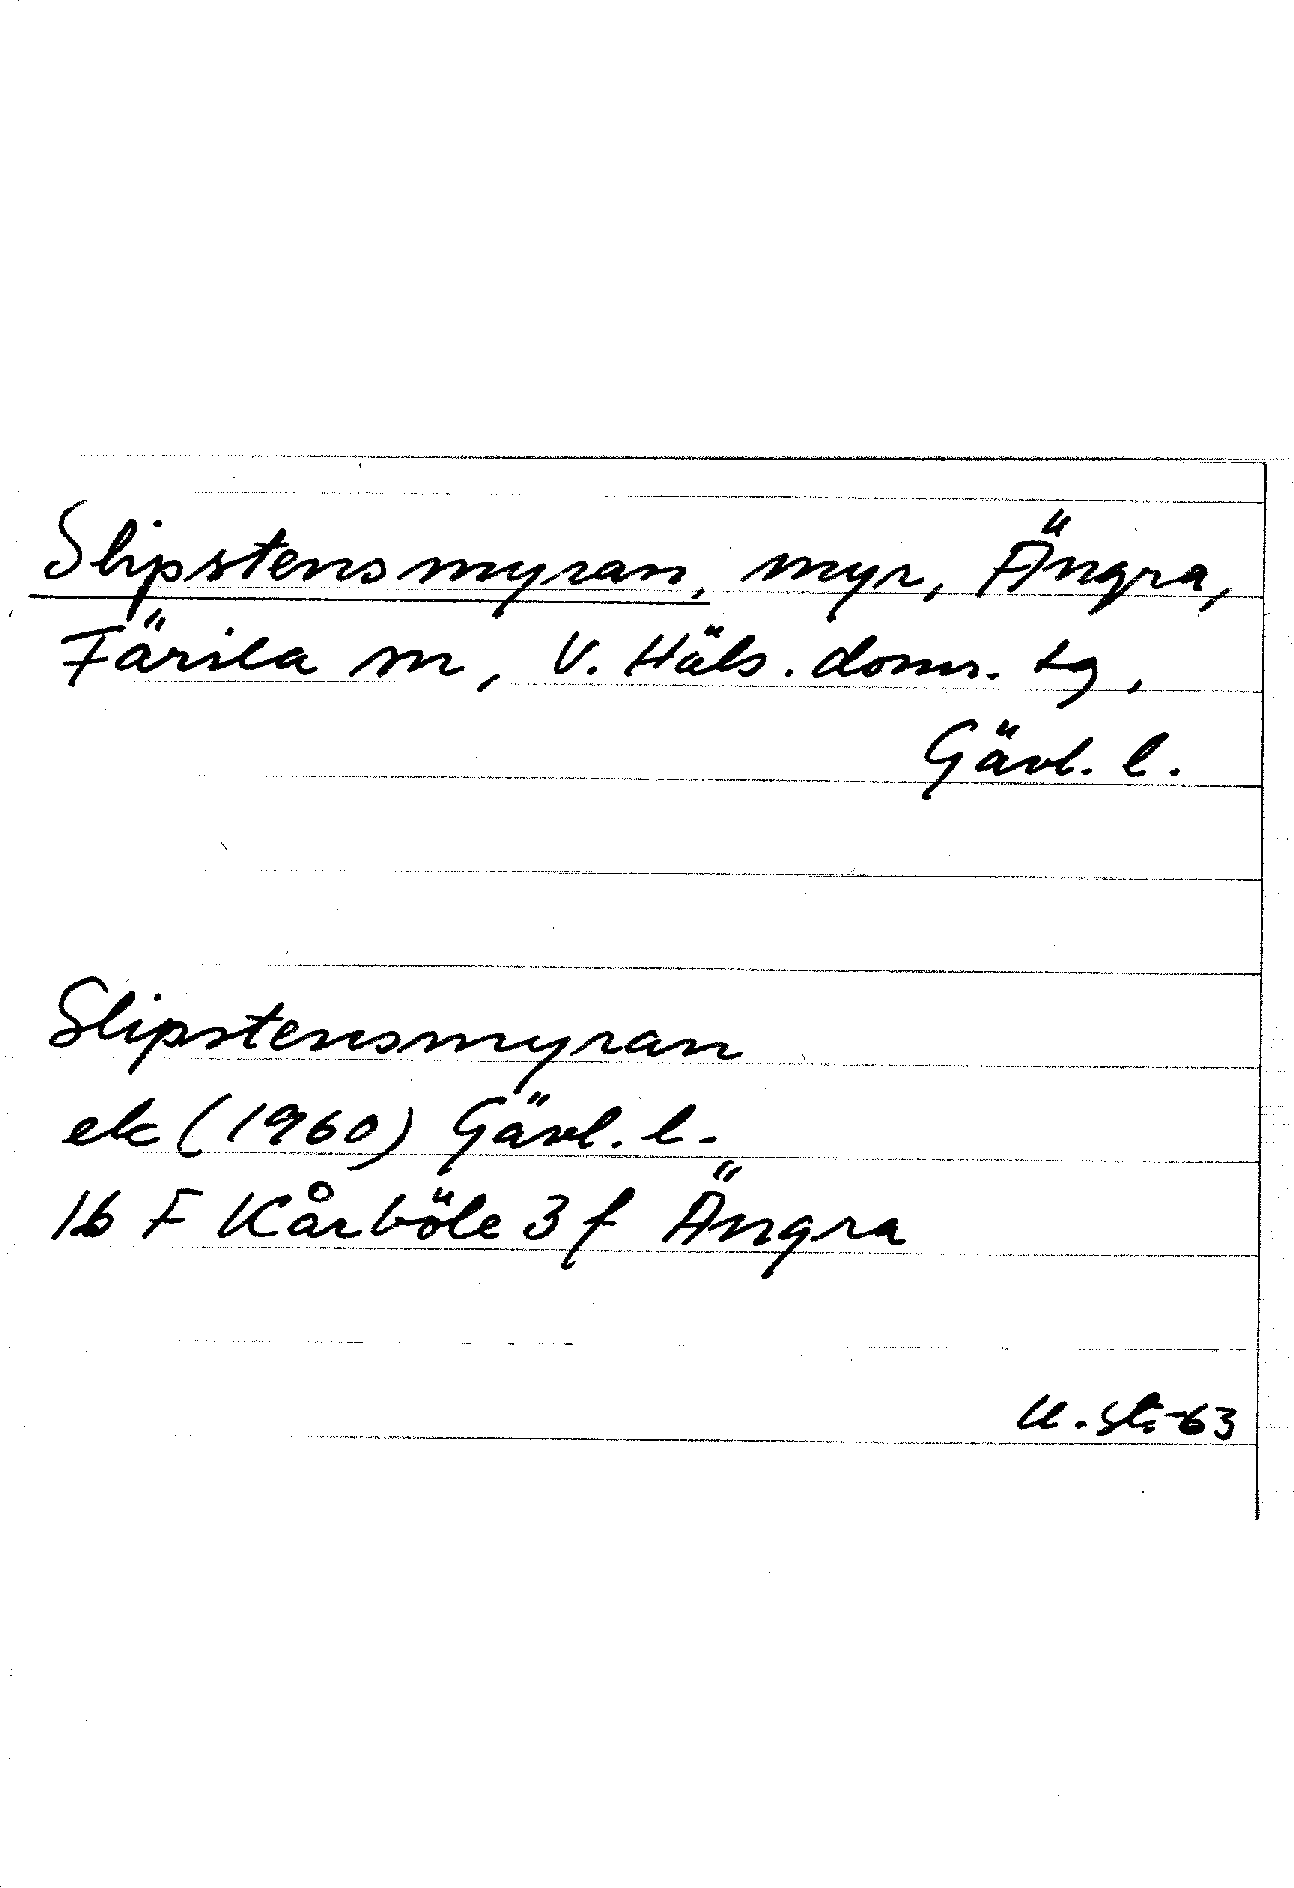 Slipstensmyran, myr, Ängra,
Färila sn, V. Häls. doms. tg,
Gävl. l.
Slipstensmyran
ek (1960) Gävl. l.
16 F Kårböle 3 f Ängra
U. St. -63